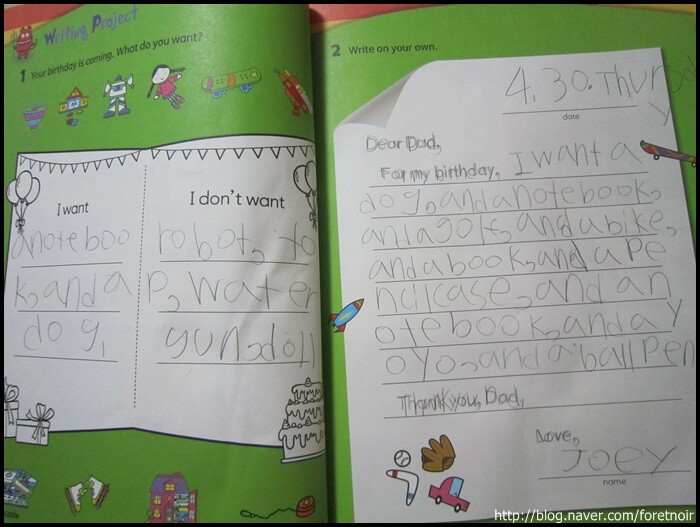 Writing Project
1 Your birthday is coming. What do you want?
I want
anoteboo
k, and a
dog,
I don't want
robot, to
p, water
gun, doll
2 Write on your own.
4. 30. Thurs
y
date
Dear Dad,
For my birthday, I want a
dog, and a notebook,
and a golf, and a bike,
and a book, and a pe
ncilcase, and an
otebook, and a y
oyo, and a ball pen
Thank you, Dad,
Love,
JOEY
name
http://blog.naver.com/foretnoir